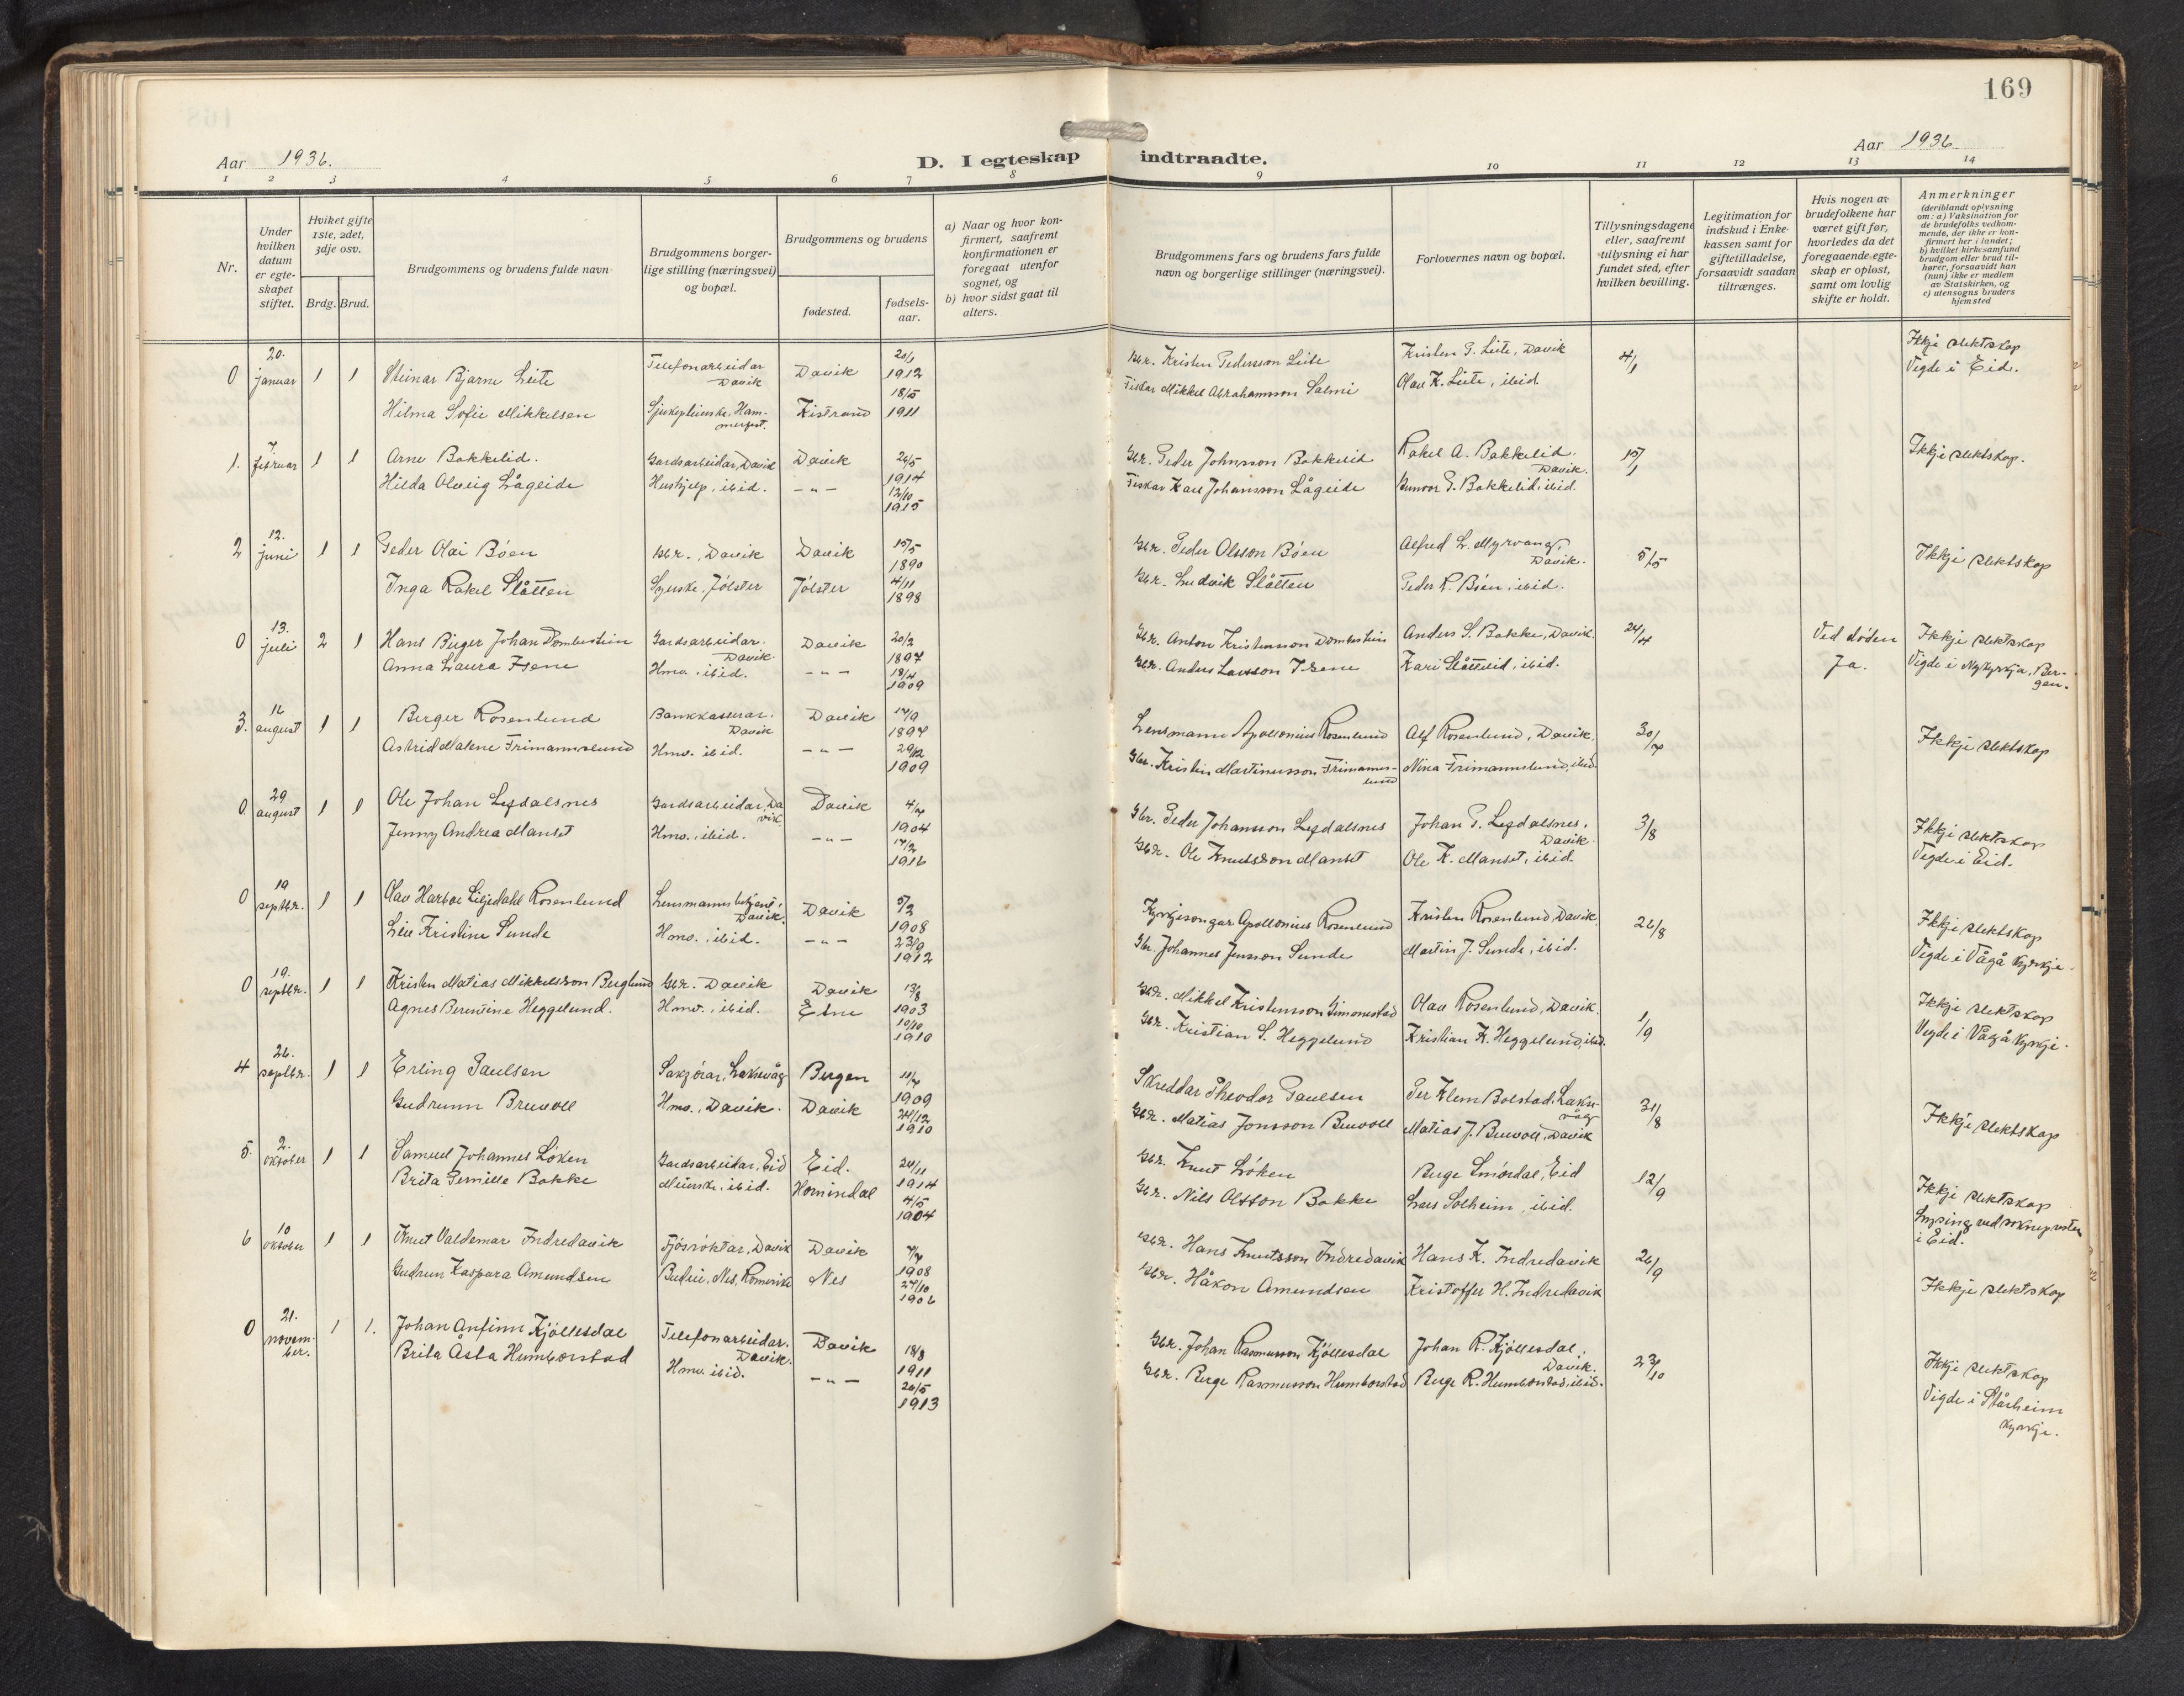 169
Aar 1936.
D. I egteskap indtraadte.
Aar 1936
1 2 3 4 5 6 7 8 9 10 11 12 13 14
Nr.
Under hvilken datum er egteskapet stiftet.
Hviket gifte 1ste, 2det, 3dje osv.
Brdg. Brud.
Brudgommens og brudens fulde navn
Brudgommens borgerlige stilling (næringsvei) og bopæl.
Brudgommens og brudens
fødested.
fødselsaar.
a) Naar og hvor konfirmert, saafremt konfirmationen er foregaat utenfor sognet, og
b) hvor sidst gaat til alters.
Brudgommens fars og brudens fars fulde navn og borgerlige stillinger (næringsvei).
Forlovernes navn og bopæl.
Tillysningsdagene eller, saafremt tillysning ei har fundet sted, efter hvilken bevilling.
Legitimation for indskud i Enkekassen samt for giftetilladelse, forsaavidt saadan tiltrænges.
Hvis nogen av brudefolkene har været gift før, hvorledes da det foregaaende egteskap er opløst, samt om lovlig skifte er holdt.
Anmerkninger (deriblandt oplysning om: a) Vaksination for de brudefolks vedkommende, der ikke er konfirmert her i landet; b) hvilket kirkesamfund brudgom eller brud tilhører, forsaavidt han (hun) ikke er medlem av Statskirken, og c) utensogns bruders hjemsted
0 20. januar 1 1 Steinar Bjarne Leite Telefonarbeidar Davik Davik 20/1 1912 Gbr. Kristen Pedersson Leite Kristen P. Leite, Davik 4/1 Ikkje slektskap
Hilma Sofie Mikkelsen Sjukepleierske, Hammerfest. Kistrand 18/5 1911 Fiskar Mikkel Abrahamson Salmi Olav K. Leite, ibid. Vigde i Eid.
1. 7. februar 1 1 Arne Bakkelid. Gardsarbeidar, Davik Davik 26/5 1914 Gbr. Peder Johnsson Bakkelid Rakel A. Bakkelid. Davik. 15/1 Ikkje slektskap.
Hilda Olveig Lågeide Hushjelp, ibid. -"- 12/10 1915 Fiskar Karl Johansson Lågeide Gunvor P. Bakkelid, ibid.
2 12. juni 1 1 Peder Olai Böen Gbr., Davik Davik 15/5 1890 Gbr. Peder Olsson Böen Alfred L. Myrvang, Davik. 5/5 Ikkje slektskap
Inga Rakel Slåtten Syerske, Jölster Jölster 4/11 1898 Gbr. Ludvik Slåtten Peder R. Böen, ibid.
0 13. juli 2 1 Hans Birger Johan Dombestein Gardsarbeidar. Davik. Davik 20/2 1897 Gbr. Anton Kristensson Dombestein Anders S. Bakke, Davik. 24/4 Ved döden Ikkje slektskap
Anna Laura Isene Hmv., ibid. -"- 18/4 1909 Gbr. Anders Larsson Isene Kari Slåtteid, ibid. Ja. Vigde i Nykyrkja, Bergen.
3. 16 august 1 1 Birger Rosenlund Bankkasserar. Davik Davik 17/9 1897 Lensmann Apollonius Rosenlund Alf Rosenlund, Davik. 30/7 Ikkje slektskap
Astrid Malene Frimannslund Hmv. ibid. -"- 29/12 1909 Gbr. Kristen Martinusson Frimannslund Nina Frimannslund, ibid.
0. 29 august 1 1 Ole Johan Legdalsnes Gardsarbeidar, Davik. Davik 4/7 1904 Gbr. Peder Johansson Legdalsnes Johan P. Legdalsnes, Davik. 3/8 Ikkje slektskap
Jenny Andrea Manset Hmv., ibid. -"- 17/2 1916 Gbr. Ole Knutsson Manset Ole K. Manset, ibid. Vigde i Eid.
0 19 septbr. 1 1 Olav Harboe Liljedahl Rosenlund Lensmannsbetjent, Davik. Davik 5/2 1908 Kyrkjesongar Apollonius Rosenlund Kristen Rosenlund, Davik 26/8 Ikkje slektskap
Liv Kristine Sunde Hmv., ibid. -"- 23/9 1912 Gbr. Johannes Jensson Sunde Martin J. Sunde, ibid. Vigde i Vågå kyrkje.
0 19. septbr. 1 1 Kristen Matias Mikkelsson Berglund Gbr. Davik Davik 13/8 1903 Gbr. Mikkel Kristensson Simonstad Olav Rosenlund, Davik. 1/9 Ikkje slektskap
Agnes Berentine Heggelund. Hmv., ibid. Etne 10/10 1910 Gbr. Kristian S. Heggelund Kristian K. Heggelund, ibid. Vigde i Vågå kyrkje.
4 26. septbr. 1 1 Erling Paulsen Sakförar, Laksevåg Bergen 11/7 1909 Skreddar Theodor Paulsen Per Klem Bolstad, Laksevåg 31/8 Ikkje slektskap
Gudrunn Bruvoll Hmv., Davik. Davik 24/12 1910 Gbr. Matias Jonsson Bruvoll Matias J. Bruvoll, Davik
5. 2. oktober 1 1 Samuel Johannes Löken Gardsarbeidar, Eid Eid. 24/11 1914 Gbr. Knut Löken Berge Smördal, Eid 12/9 Ikkje slektskap
Brita Pernille Bakke Meierske, ibid. Hornindal 4/5 1904 Gbr. Nils Olsson Bakke Lars Solheim, ibid. Lysing ved soknepresten i Eid.
6 10 oktober 1 1 Knut Valdemar Indredavik Fjösröktar, Davik Davik 7/7 1908 Gbr. Hans Knutsson Indredavik Hans K. Indredavik 26/9 Ikkje slektskap
Gudrun Kaspara Amundsen Budeie, Nes, Romerike Nes 27/10 1906 Gbr. Håkon Amundsen Kristoffer H. Indredavik
0 21. november. 1 1. Johan Anfinn Kjöllesdal Telefonarbeidar. Davik. Davik 18/8 1911 Gbr. Johan Rasmusson Kjöllesdal Johan R. Kjöllesdal, Davik. 23/10 Ikkje slektskap
Brita Åsta Humborstad Hmv. ibid. -"- 20/5 1913 Gbr. Berge Rasmusson Humborstad Berge R. Humborstad, ibid. Vigde i Stårheim kyrkje.